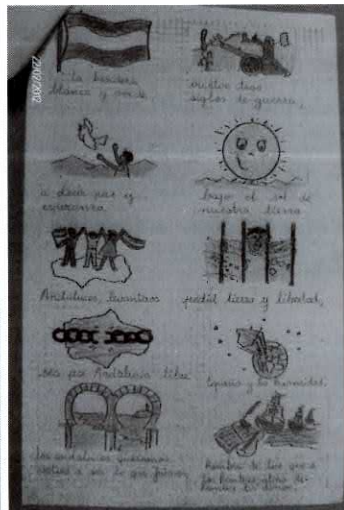 22/02/2012
la bandera
blanca y verde
vuelve tras
siglos de guerra,
a decir paz y
esperanza
bajo el sol de
nuestra tierra
Andaluces, levantaos
pedid tierra y libertad,
sea por Andalucía libre
España y la Humanidad.
los andaluces queremos
volver a ser lo que fuimos
hombres de luz que a
los hombres